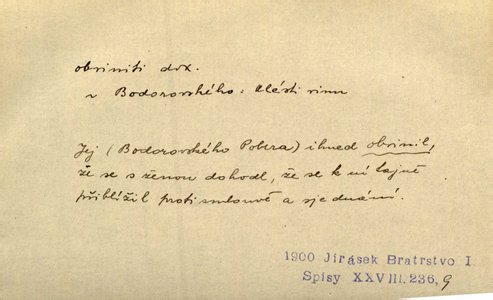 obviniti dok.
v Bodorovského: klásti vinu
Jej (Bodorovského Pobera) ihned obvinil,
že se s ženou dohodl, že se k ní tajně
přiblížil proti smlouvě a sjednání.
1900 Jirásek Bratrstvo I.
Spisy XXVIII. 236, 9